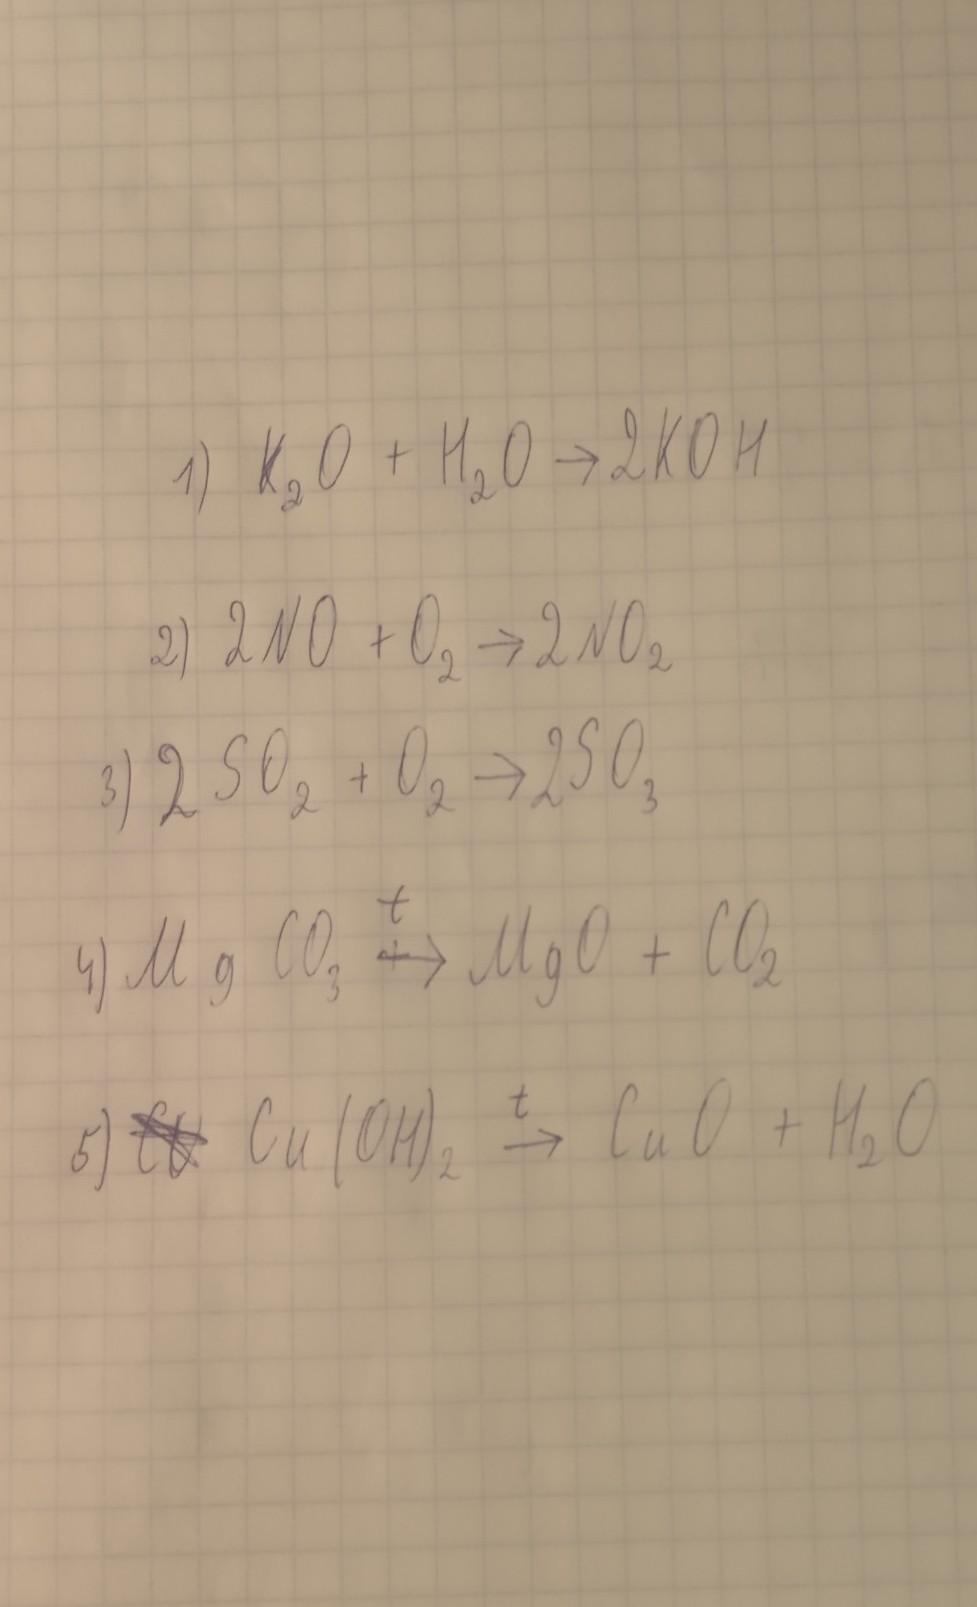 1) K₂O + H₂O → 2KOH
2) 2NO + O₂ → 2NO₂
3) 2SO₂ + O₂ → 2SO₃
4) MgCO₃ t→ MgO + CO₂
5) Cu(OH)₂ t→ CuO + H₂O